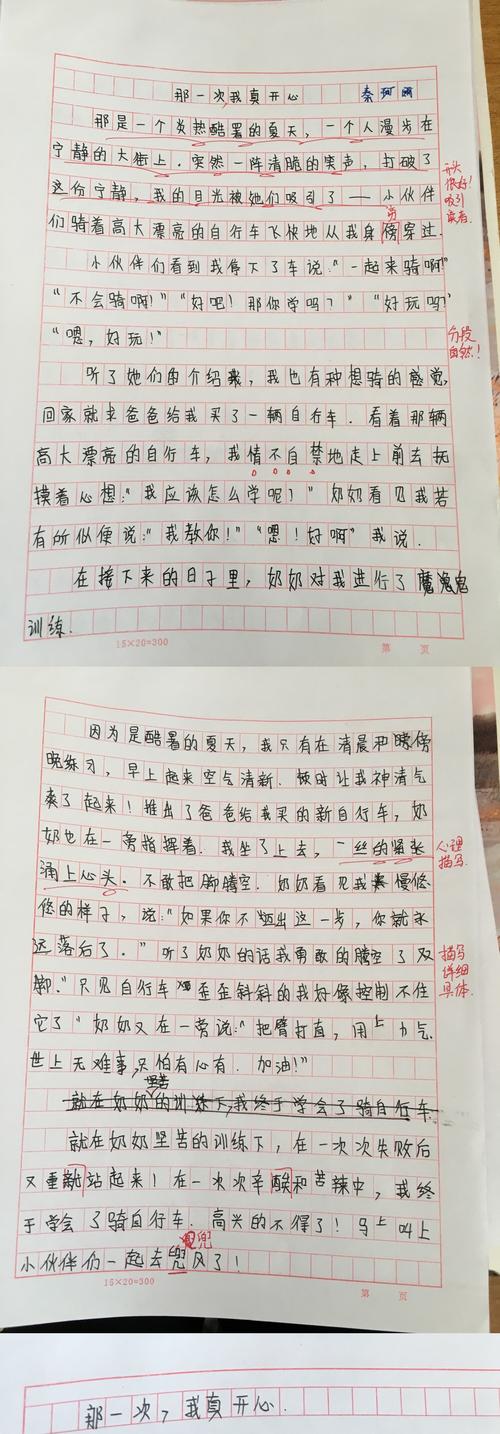 那一次我真开心 秦珂
那是一个炎热酷暑的夏天，一个人漫步在
宁静的大街上．突然一阵清脆的笑声，打破了
这份宁静，我的目光被她们吸引了——小伙伴
们骑着高大漂亮的自行车飞快地从我身傍穿过．
旁
开头
很好！
吸引
读者．
小伙伴们看到我停下了车说："一起来骑啊！"
"不会骑啊！""好吧！那你学吗？""好玩吗？"
"嗯，好玩！"
分段
自然！
听了她们的介绍，我也有种想骑的感觉，
回家就求爸爸给我买了一辆自行车．看着那辆
高大漂亮的自行车，我情不自禁地走上前去抚
摸着心想："我应该怎么学呢？"奶奶看见我若
有所似便说："我教你！""嗯！好啊"我说．
在接下来的日子里，奶奶对我进行了魔鬼
训练．
15×20=300
第 页
因为是酷暑的夏天，我只有在清晨和傍
晚练习，早上起来空气清新．顿时让我神清气
爽了起来！推出了爸爸给我买的新自行车，奶
奶也在一旁指挥着．我坐了上去，一丝的紧张
涌上心头．不敢把脚腾空．奶奶看见我慢悠
悠的样子，说："如果你不迈出这一步，你就永
远落后了．"听了奶奶的话我勇敢的腾空了双
脚．"只见自行车歪歪斜斜的我好像控制不住
它了"奶奶又在一旁说："把臂打直，用上力气．
世上无难事，只怕有心有．加油！"
心理
描写．
描写
详细
具体．
就在奶奶坚苦的训练下，我终于学会了骑自行车．
就在奶奶坚苦的训练下，在一次次失败后
又重新站起来！在一次次辛酸和苦辣中，我终
于学会了骑自行车．高兴的不得了！马上叫上
小伙伴们一起去兜风了！
兜
15×20=300
第 页
那一次，我真开心．